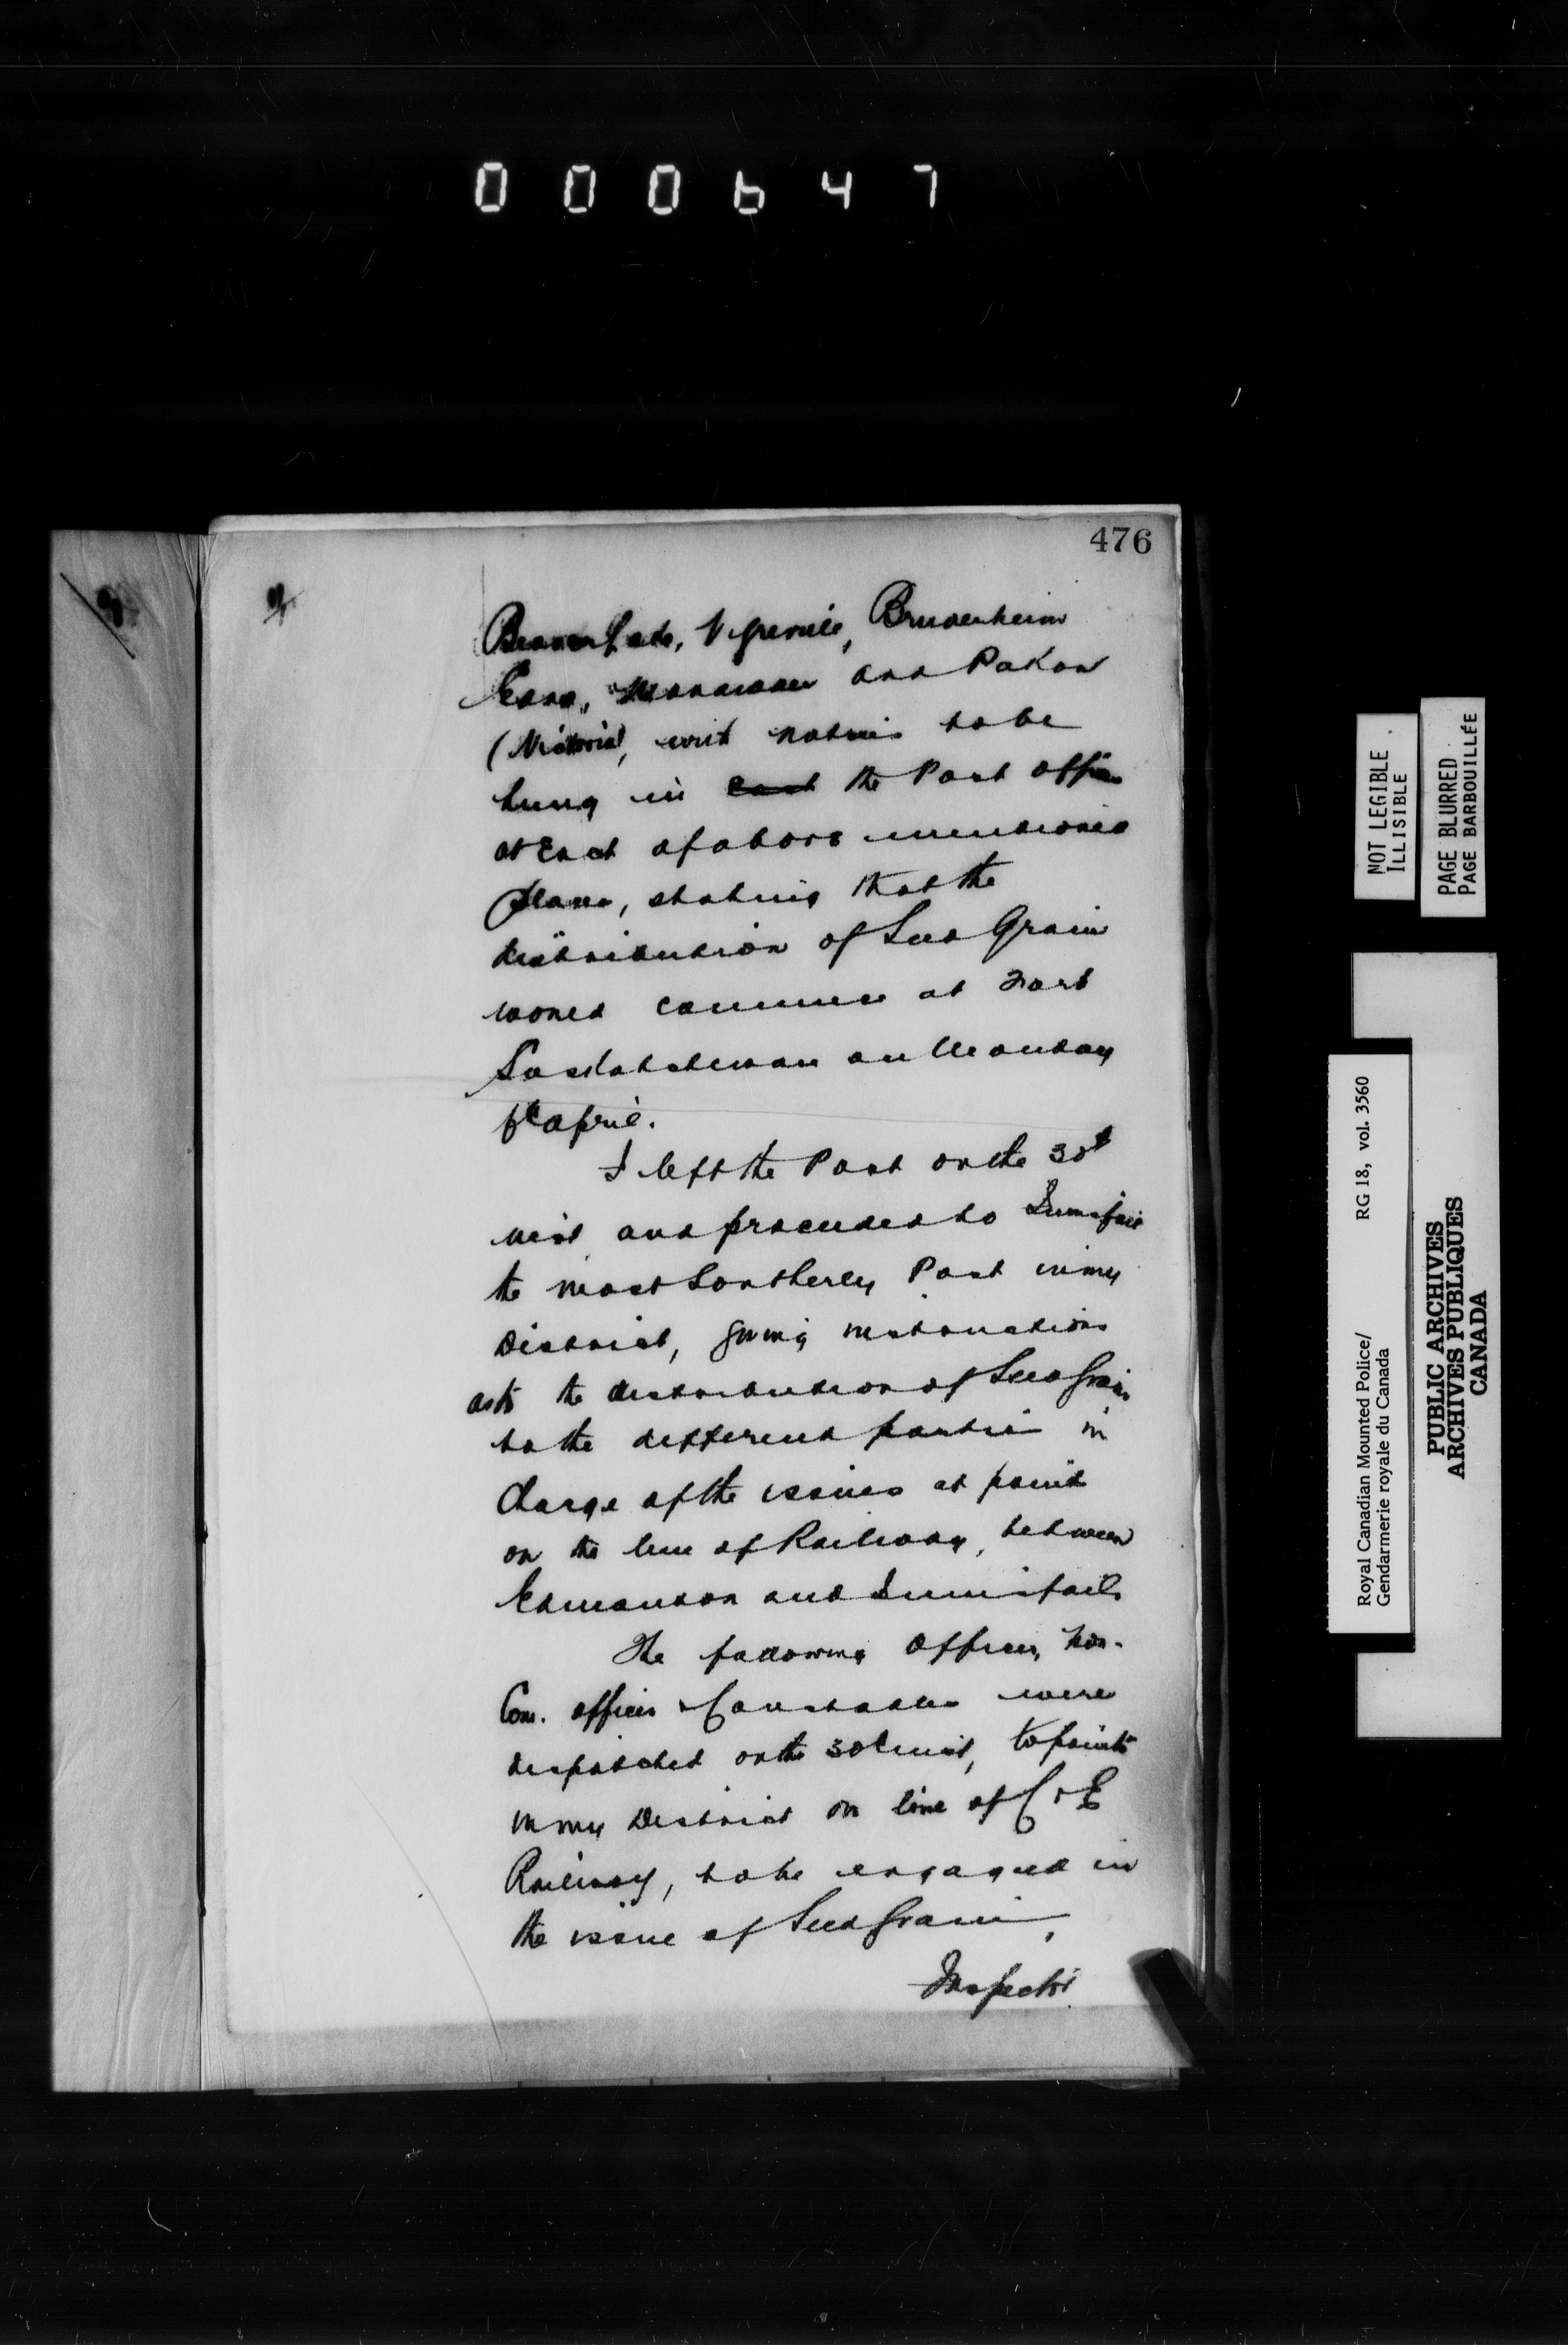 000647
476
2
Beaver Lake, Vegreville, Bruderheim
Edna, and Pakan
(Victoria), with notices to be
hung in each the Post Office
at Each of above mentioned
places, stating that the
distribution of Seed Grain
would commence at Fort
Saskatchewan on Monday
April.
I left the Post on the 30th
inst and proceeded to Innisfail
the most Southerly Post in my
District, giving instructions
as to the distribution of Seed Grain
to the different parties in
Charge of the issues at points
on the line of Railway, between
Edmonton and Innisfail
The following Officers, Non-
Com. officers & Constables were
despatched on the 30th inst, to points
in my District on line of C & E
Railway, to be engaged in
the issue of Seed Grain,
Inspector
NOT LEGIBLE
ILLISIBLE
PAGE BLURRED
PAGE BARBOUILLÉE
Royal Canadian Mounted Police/ RG 18, vol. 3560
Gendarmerie royale du Canada
PUBLIC ARCHIVES
ARCHIVES PUBLIQUES
CANADA